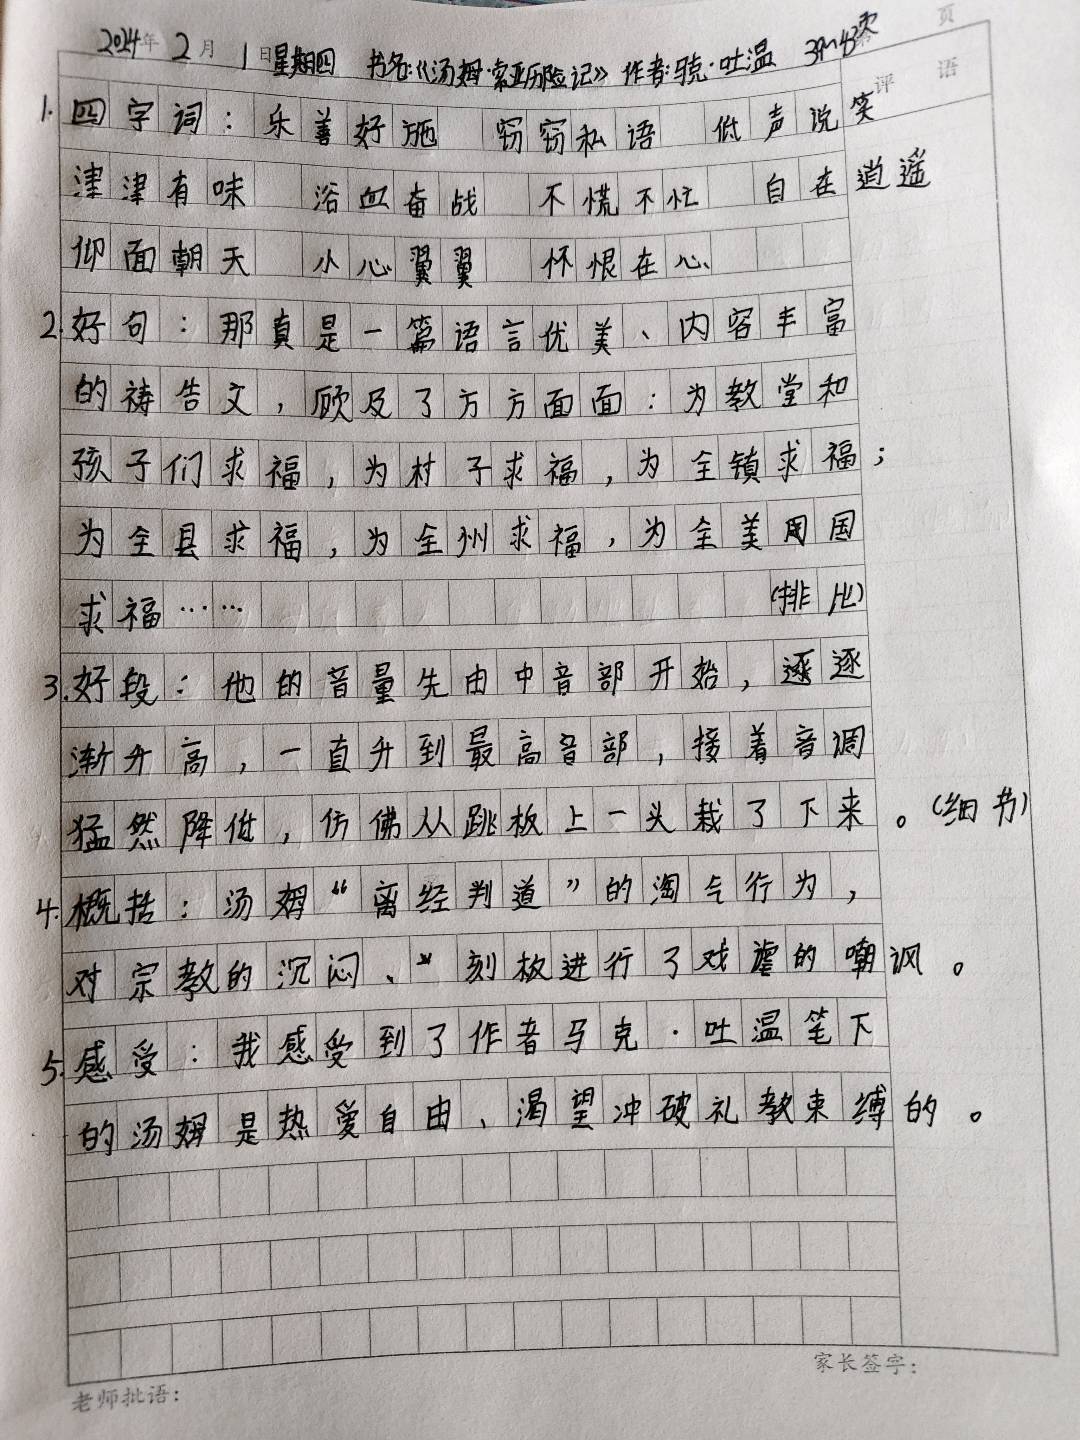 2024年 2月 1日 星期四 书名:《汤姆·索亚历险记》 作者:马克·吐温 39~43页
页
评语
1. 四字词：乐善好施 窃窃私语 低声说笑
津津有味 浴血奋战 不慌不忙 自在逍遥
仰面朝天 小心翼翼 怀恨在心
2. 好句：那真是一篇语言优美、内容丰富
的祷告文，顾及了方方面面：为教堂和
孩子们求福，为村子求福，为全镇求福；
为全县求福，为全州求福，为全美国
求福…… (排比)
3. 好段：他的音量先由中音部开始，逐
渐升高，一直升到最高音部，接着音调
猛然降低，仿佛从跳板上一头栽了下来。(细节)
4. 概括：汤姆“离经判道”的淘气行为，
对宗教的沉闷、刻板进行了戏谑的嘲讽。
5. 感受：我感受到了作者马克·吐温笔下
的汤姆是热爱自由、渴望冲破礼教束缚的。
家长签字：
老师批语：